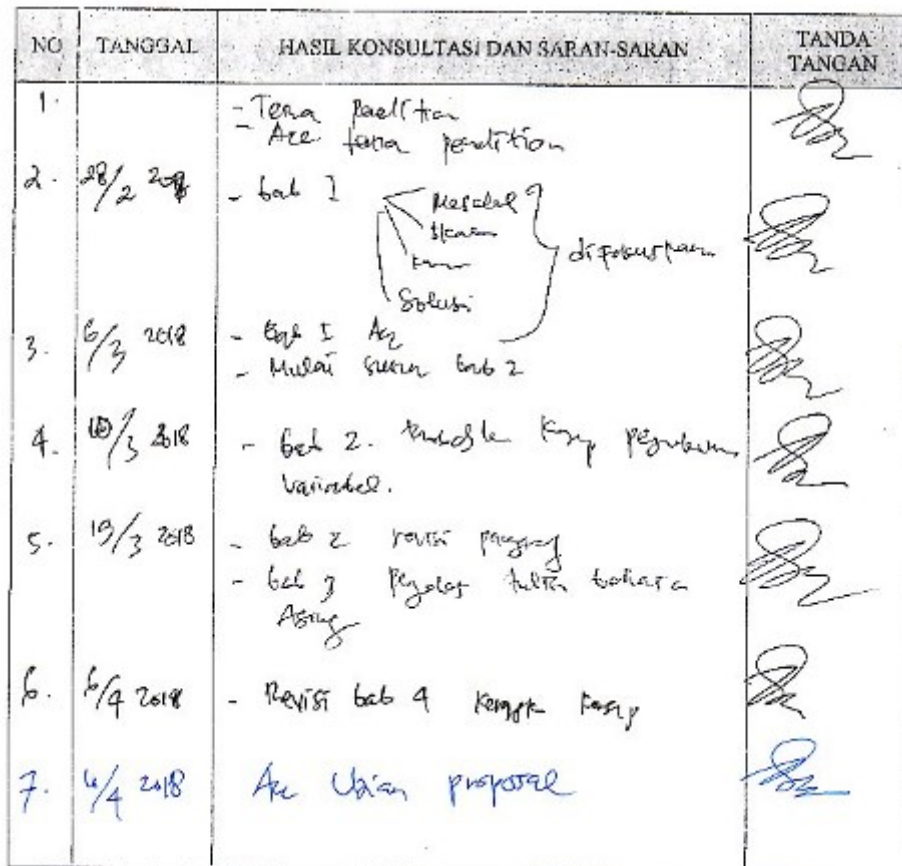 NO TANGGAL HASIL KONSULTASI DAN SARAN-SARAN TANDA TANGAN
1. - Tema penelitian
- Acc tema penelitian
2. 28/2 - bab I Masalah
Skala
Solusi
difokuskan
3. 6/3 2018 - Bab I Acc
- Mulai susun bab 2
4. /3 2018 - bab 2. konsep
variabel.
5. 19/3 2018 - bab 2 revisi paragraf
- bab 3 tulisan bahasa
Asing
6. 6/4 2018 - Revisi bab 4 kerangka konsep
7. /4 2018 Acc Ujian proposal